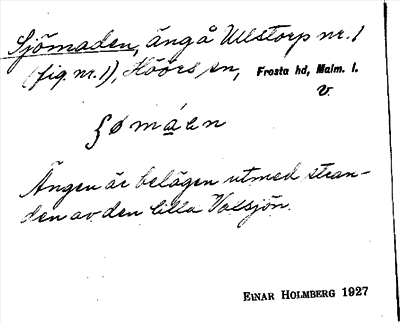 Sjömaden, äng å Ullstorp nr. 1
(fig. nr. 1), Höörs sn, Frosta hd, Malm. l.
v.
ʃømáɛn
Ängen är belägen utmed stran-
den av den lilla Vaxsjön.
EINAR HOLMBERG 1927